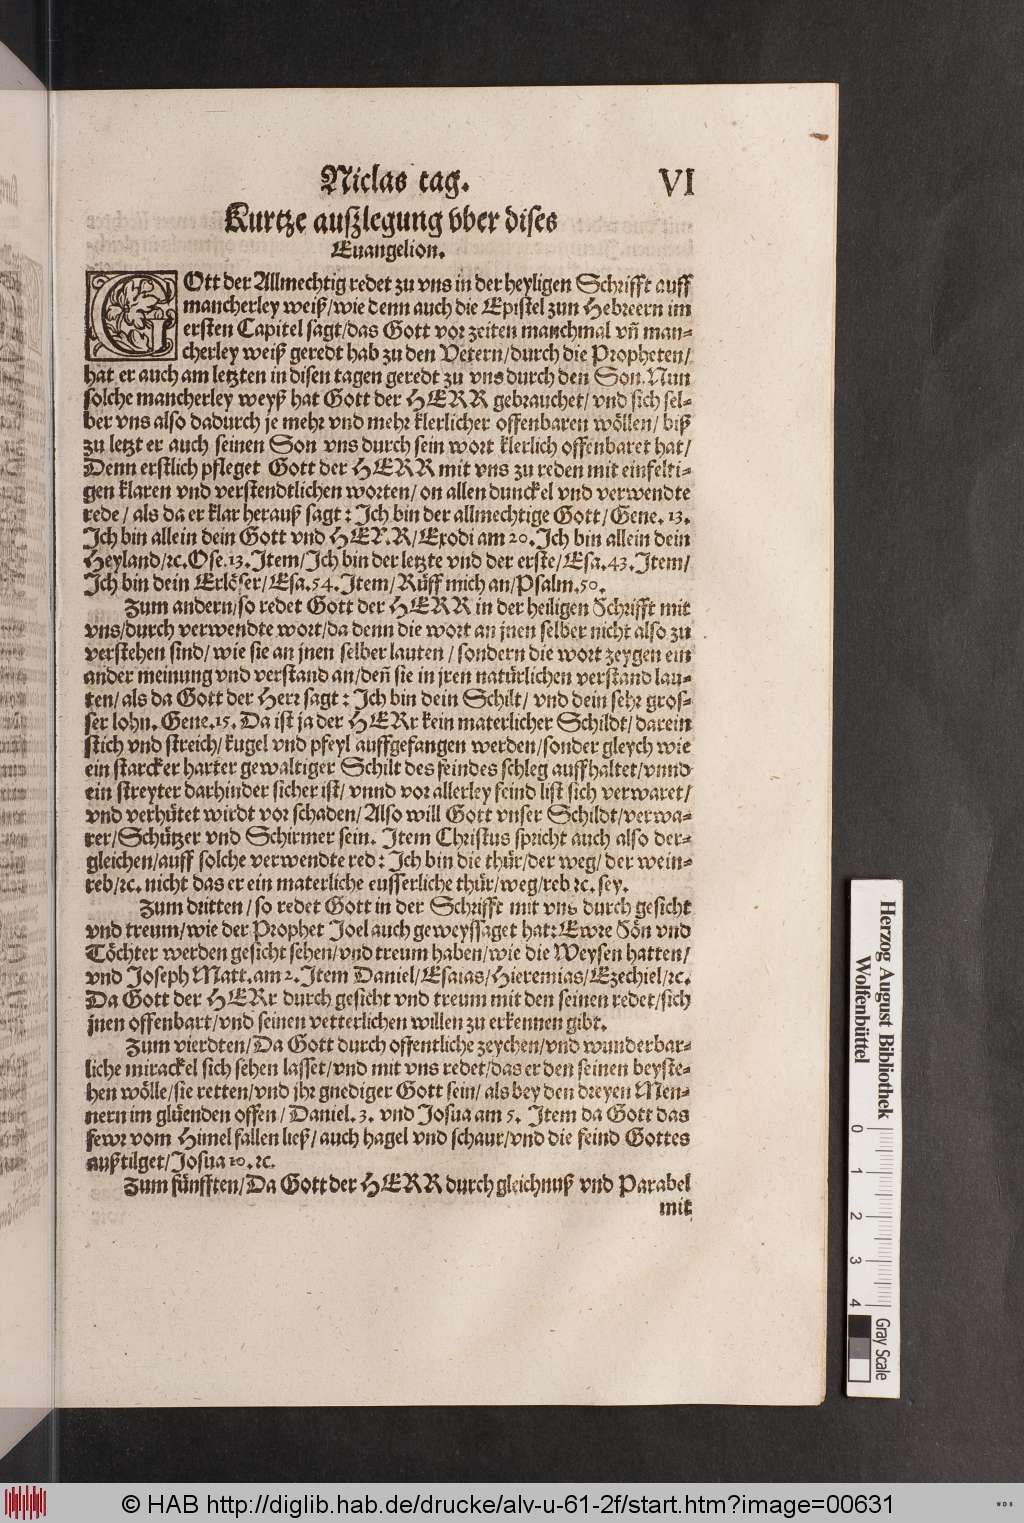 Niclas tag. VI
Kurtze außlegung vber dises
Euangelion.
GOtt der Allmechtig redet zu vns in der heyligen Schrifft auff
mancherley weiß/wie denn auch die Epistel zun Hebreern im
ersten Capitel sagt/das Gott vor zeiten manchmal vñ man-
cherley weiß geredt hab zu den Vetern/durch die Propheten/
hat er auch am letzten in disen tagen geredt zu vns durch den Son. Nun
solche mancherley weyß hat Gott der HERR gebrauchet/ vnd sich sel-
ber vns also dadurch je mehr vnd mehr klerlicher offenbaren wöllen/ biß
zu letzt er auch seinen Son vns durch sein wort klerlich offenbaret hat/
Denn erstlich pfleget Gott der HERR mit vns zu reden mit einfelti-
gen klaren vnd verstendtlichen worten/ on allen dunckel vnd verwendte
rede/ als da er klar herauß sagt: Ich bin der allmechtige Gott/ Gene. 13.
Ich bin allein dein Gott vnd HERR/ Exodi am 20. Ich bin allein dein
Heyland/ꝛc. Ose. 13. Item/ Ich bin der letzte vnd der erste/ Esa. 43. Item/
Ich bin dein Erlöser/ Esa. 54. Item/ Rüff mich an/ Psalm. 50.
Zum andern/ so redet Gott der HERR in der heiligen Schrifft mit
vns/ durch verwendte wort/ da denn die wort an jnen selber nicht also zu
verstehen sind/ wie sie an jnen selber lauten/ sondern die wort zeygen ein
ander meinung vnd verstand an/ deñ sie in jren natürlichen verstand lau-
ten/ als da Gott der Herr sagt: Ich bin dein Schilt/ vnd dein sehr gros-
ser lohn. Gene. 15. Da ist ja der HERr kein materlicher Schildt/ darein
stich vnd streich/ kugel vnd pfeyl auffgefangen werden/ sonder gleych wie
ein starcker harter gewaltiger Schilt des feindes schleg auffhaltet/ vnnd
ein streyter darhinder sicher ist/ vnnd vor allerley feind list sich verwaret/
vnd verhütet wirdt vor schaden/ Also will Gott vnser Schildt/ verwa-
rer/ Schützer vnd Schirmer sein. Item Christus spricht auch also der-
gleichen/ auff solche verwendte red: Ich bin die thür/ der weg/ der wein-
reb/ꝛc. nicht das er ein materliche eusserliche thür/ weg/ reb ꝛc. sey.
Zum dritten/ so redet Gott in der Schrifft mit vns durch gesicht
vnd treum/ wie der Prophet Joel auch geweyssaget hat: Ewre Sön vnd
Töchter werden gesicht sehen/ vnd treum haben/ wie die Weysen hatten/
vnd Joseph Matt. am 2. Item Daniel/ Esaias/ Hieremias/ Ezechiel/ꝛc.
Da Gott der HERr durch gesicht vnd treum mit den seinen redet/ sich
jnen offenbart/ vnd seinen vetterlichen willen zu erkennen gibt.
Zum vierdten/ Da Gott durch offentliche zeychen/ vnd wunderbar-
liche mirackel sich sehen lasset/ vnd mit vns redet/ das er den seinen beyste-
hen wölle/ sie retten/ vnd jhr gnediger Gott sein/ als bey den dreyen Men-
nern im glüenden offen/ Daniel. 3. vnd Josua am 5. Item da Gott das
fewr vom Himel fallen ließ/ auch hagel vnd schaur/ vnd die feind Gottes
außtilget/ Josua 10. ꝛc.
Zum fünfften/ Da Gott der HERR durch gleichnuß vnd Parabel
mit
Herzog August Bibliothek
Wolfenbüttel
0 1 2 3 4
Gray Scale
© HAB http://diglib.hab.de/drucke/alv-u-61-2f/start.htm?image=00631